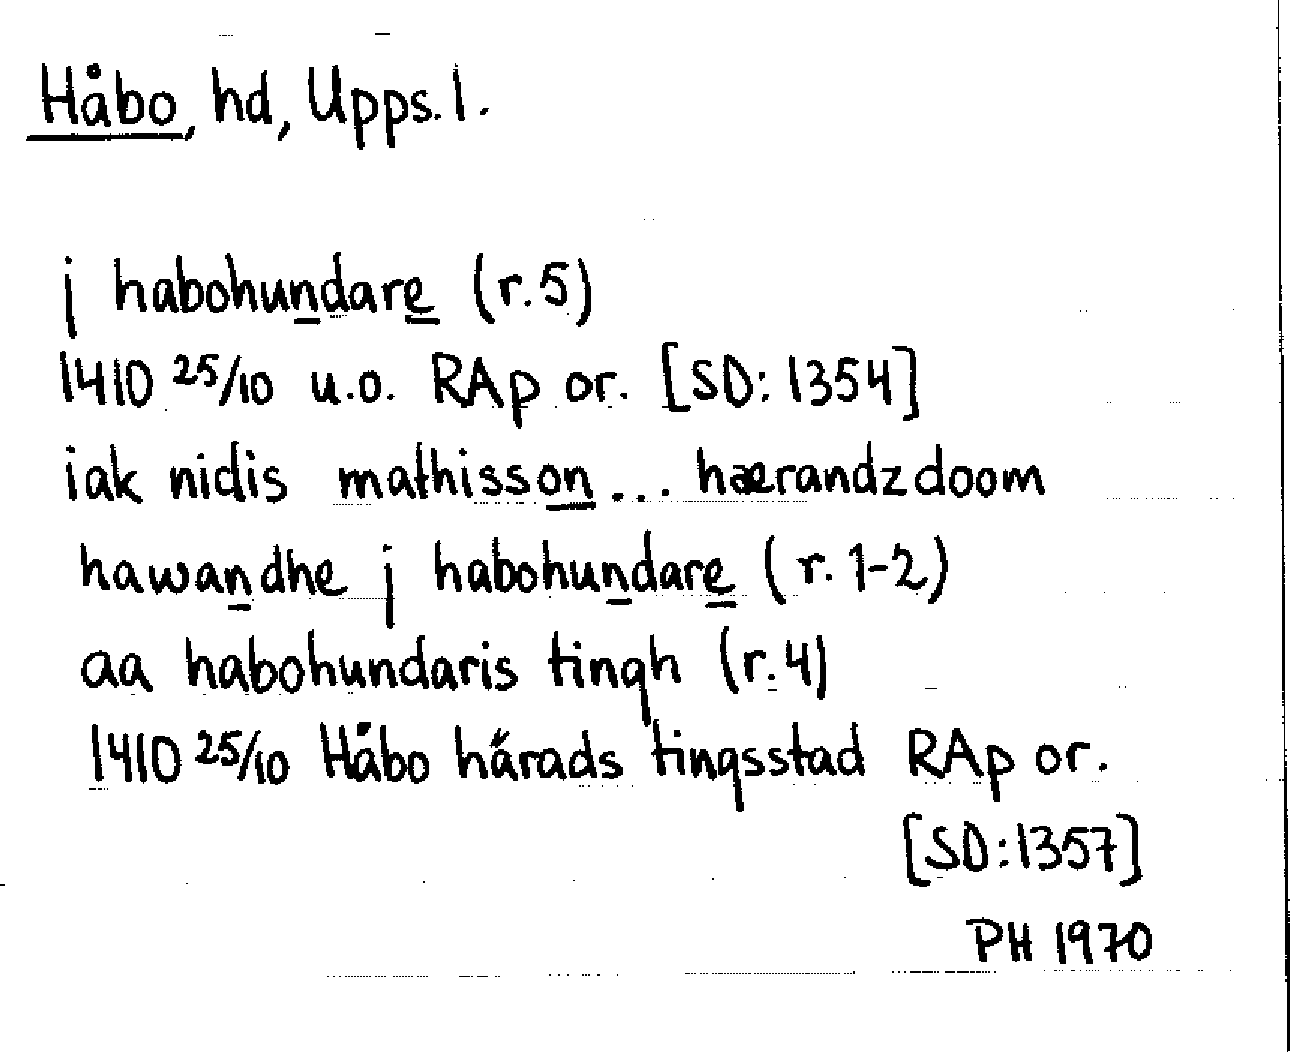 Håbo, hd, Upps. l.
j habohundare (r. 5)
1410 25/10 u.o. RAp or. [SD: 1354]
iak nidis mathisson ... hærandzdoom
hawandhe j habohundare (r. 1-2)
aa habohundaris tingh (r. 4)
1410 25/10 Håbo härads tingsstad RAp or.
[SD: 1357]
PH 1970